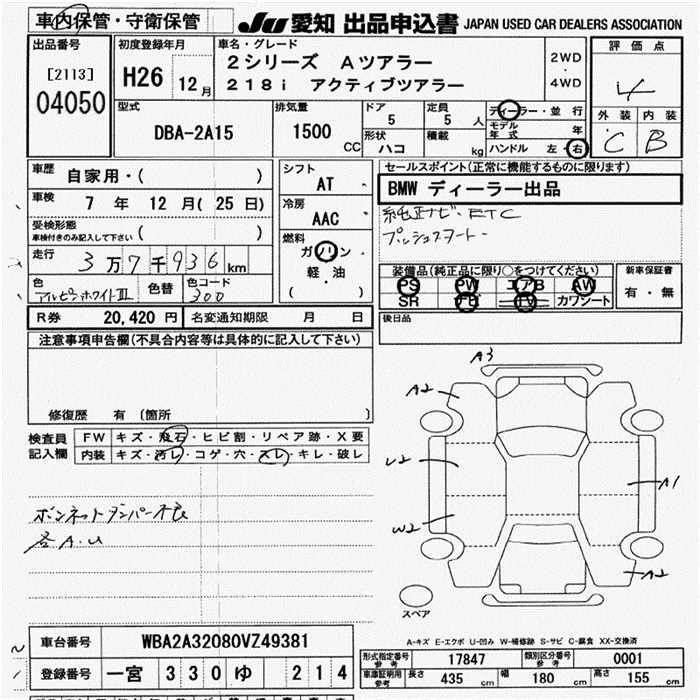 車内保管・守衛保管
JU 愛知 出品申込書 JAPAN USED CAR DEALERS ASSOCIATION
出品番号
[2113]
04050
初度登録年月
H26 12月
車名・グレード
2シリーズ Aツアラー
218i アクティブツアラー
2WD
・
4WD
評価点
4
外装 内装
C B
型式
DBA-2A15
排気量
1500 CC
ドア
5
定員
5 人
形状
ハコ
積載
kg
ディーラー・並行
モデル年式 年
ハンドル 左・右
車歴 自家用・( )
車検 7 年 12 月 ( 25 日)
受検形態
車検付きのみ記入して下さい ( )
走行 3万7千936km
色 アルピンホワイトIII
色替
色コード 300
シフト
AT
冷房
AAC
燃料
ガソリン
軽・油
( )
セールスポイント(正常に機能するものに限ります)
BMW ディーラー出品
純正ナビ・ETC
プッシュスタート
装備品(純正品に限り○をつけてください)
PS PW エアB AW
SR TV カワシート
新車保証書
有・無
R券 20,420 円 名変通知期限 月 日
後日品
注意事項申告欄(不具合内容等は具体的に記入して下さい)
修復歴 有 (箇所 )
検査員記入欄
FW キズ・飛石・ヒビ割・リペア跡・X要
内装 キズ・汚レ・コゲ・穴・スレ・キレ・破レ
ボンネットダンパー不良
各A.U
A3
A2
U2
W2
A1
A2
スペア
A-キズ E-エクボ U-凹み W-補修跡 S-サビ C-腐食 XX-交換済
車台番号 WBA2A32080VZ49381
登録番号 一宮 330 ゆ 214
形式指定番号 参考 17847
類別区分番号 参考 0001
車庫証明用参考 長さ 435 cm 幅 180 cm 高さ 155 cm